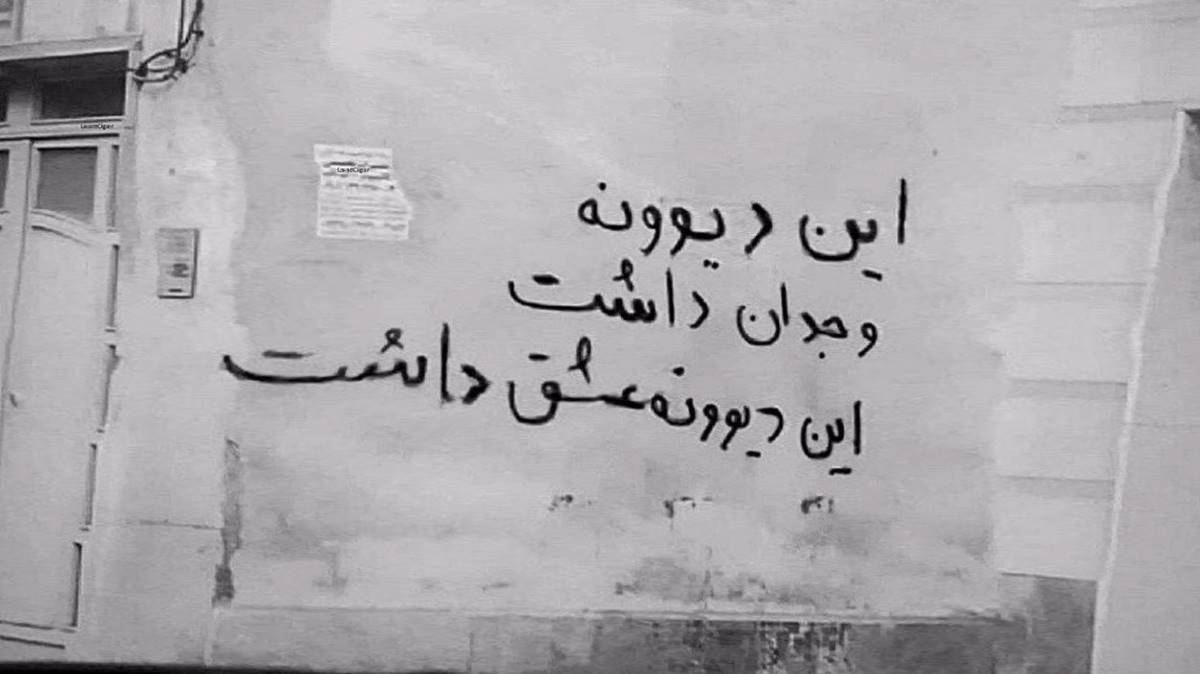 این دیوونه
وجدان داشت
این دیوونه عشق داشت